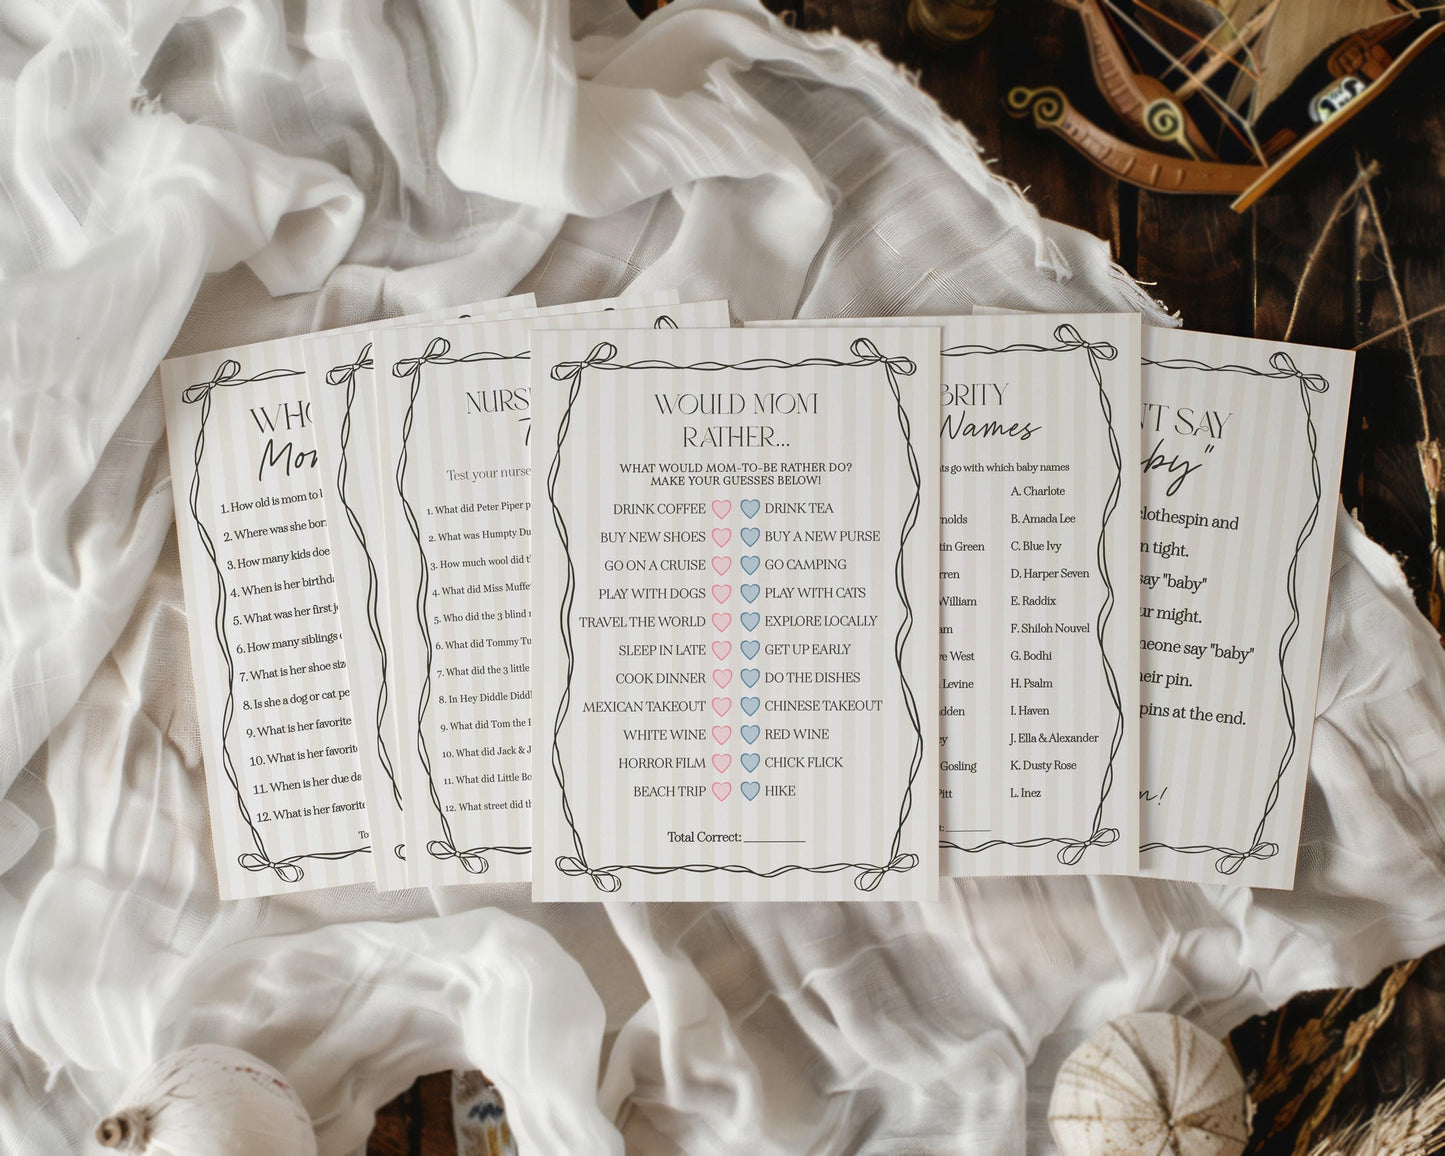 WHO
Mom
1. How old is mom to b
2. Where was she bor
3. How many kids doe
4. When is her birthda
5. What was her first j
6. How many siblings
7. What is her shoe siz
8. Is she a dog or cat pe
9. What is her favorite
10. What is her favorit
11. When is her due da
12. What is her favorite
To
NURS
Test your nurse
1. What did Peter Piper p
2. What was Humpty Du
3. How much wool did th
4. What did Miss Muffe
5. Who did the 3 blind m
6. What did Tommy Tu
7. What did the 3 little
8. In Hey Diddle Diddl
9. What did Tom the
10. What did Jack & J
11. What did Little Bo
12. What street did th
WOULD MOM
RATHER...
WHAT WOULD MOM-TO-BE RATHER DO?
MAKE YOUR GUESSES BELOW!
DRINK COFFEE DRINK TEA
BUY NEW SHOES BUY A NEW PURSE
GO ON A CRUISE GO CAMPING
PLAY WITH DOGS PLAY WITH CATS
TRAVEL THE WORLD EXPLORE LOCALLY
SLEEP IN LATE GET UP EARLY
COOK DINNER DO THE DISHES
MEXICAN TAKEOUT CHINESE TAKEOUT
WHITE WINE RED WINE
HORROR FILM CHICK FLICK
BEACH TRIP HIKE
Total Correct: __________
BRITY
Names
ts go with which baby names
A. Charlote
nolds B. Amada Lee
tin Green C. Blue Ivy
rren D. Harper Seven
William E. Raddix
am F. Shiloh Nouvel
ve West G. Bodhi
Levine H. Psalm
dden I. Haven
ey J. Ella & Alexander
Gosling K. Dusty Rose
Pitt L. Inez
t: ________
'T SAY
by"
clothespin and
n tight.
say "baby"
ur might.
meone say "baby"
heir pin.
pins at the end.
m!